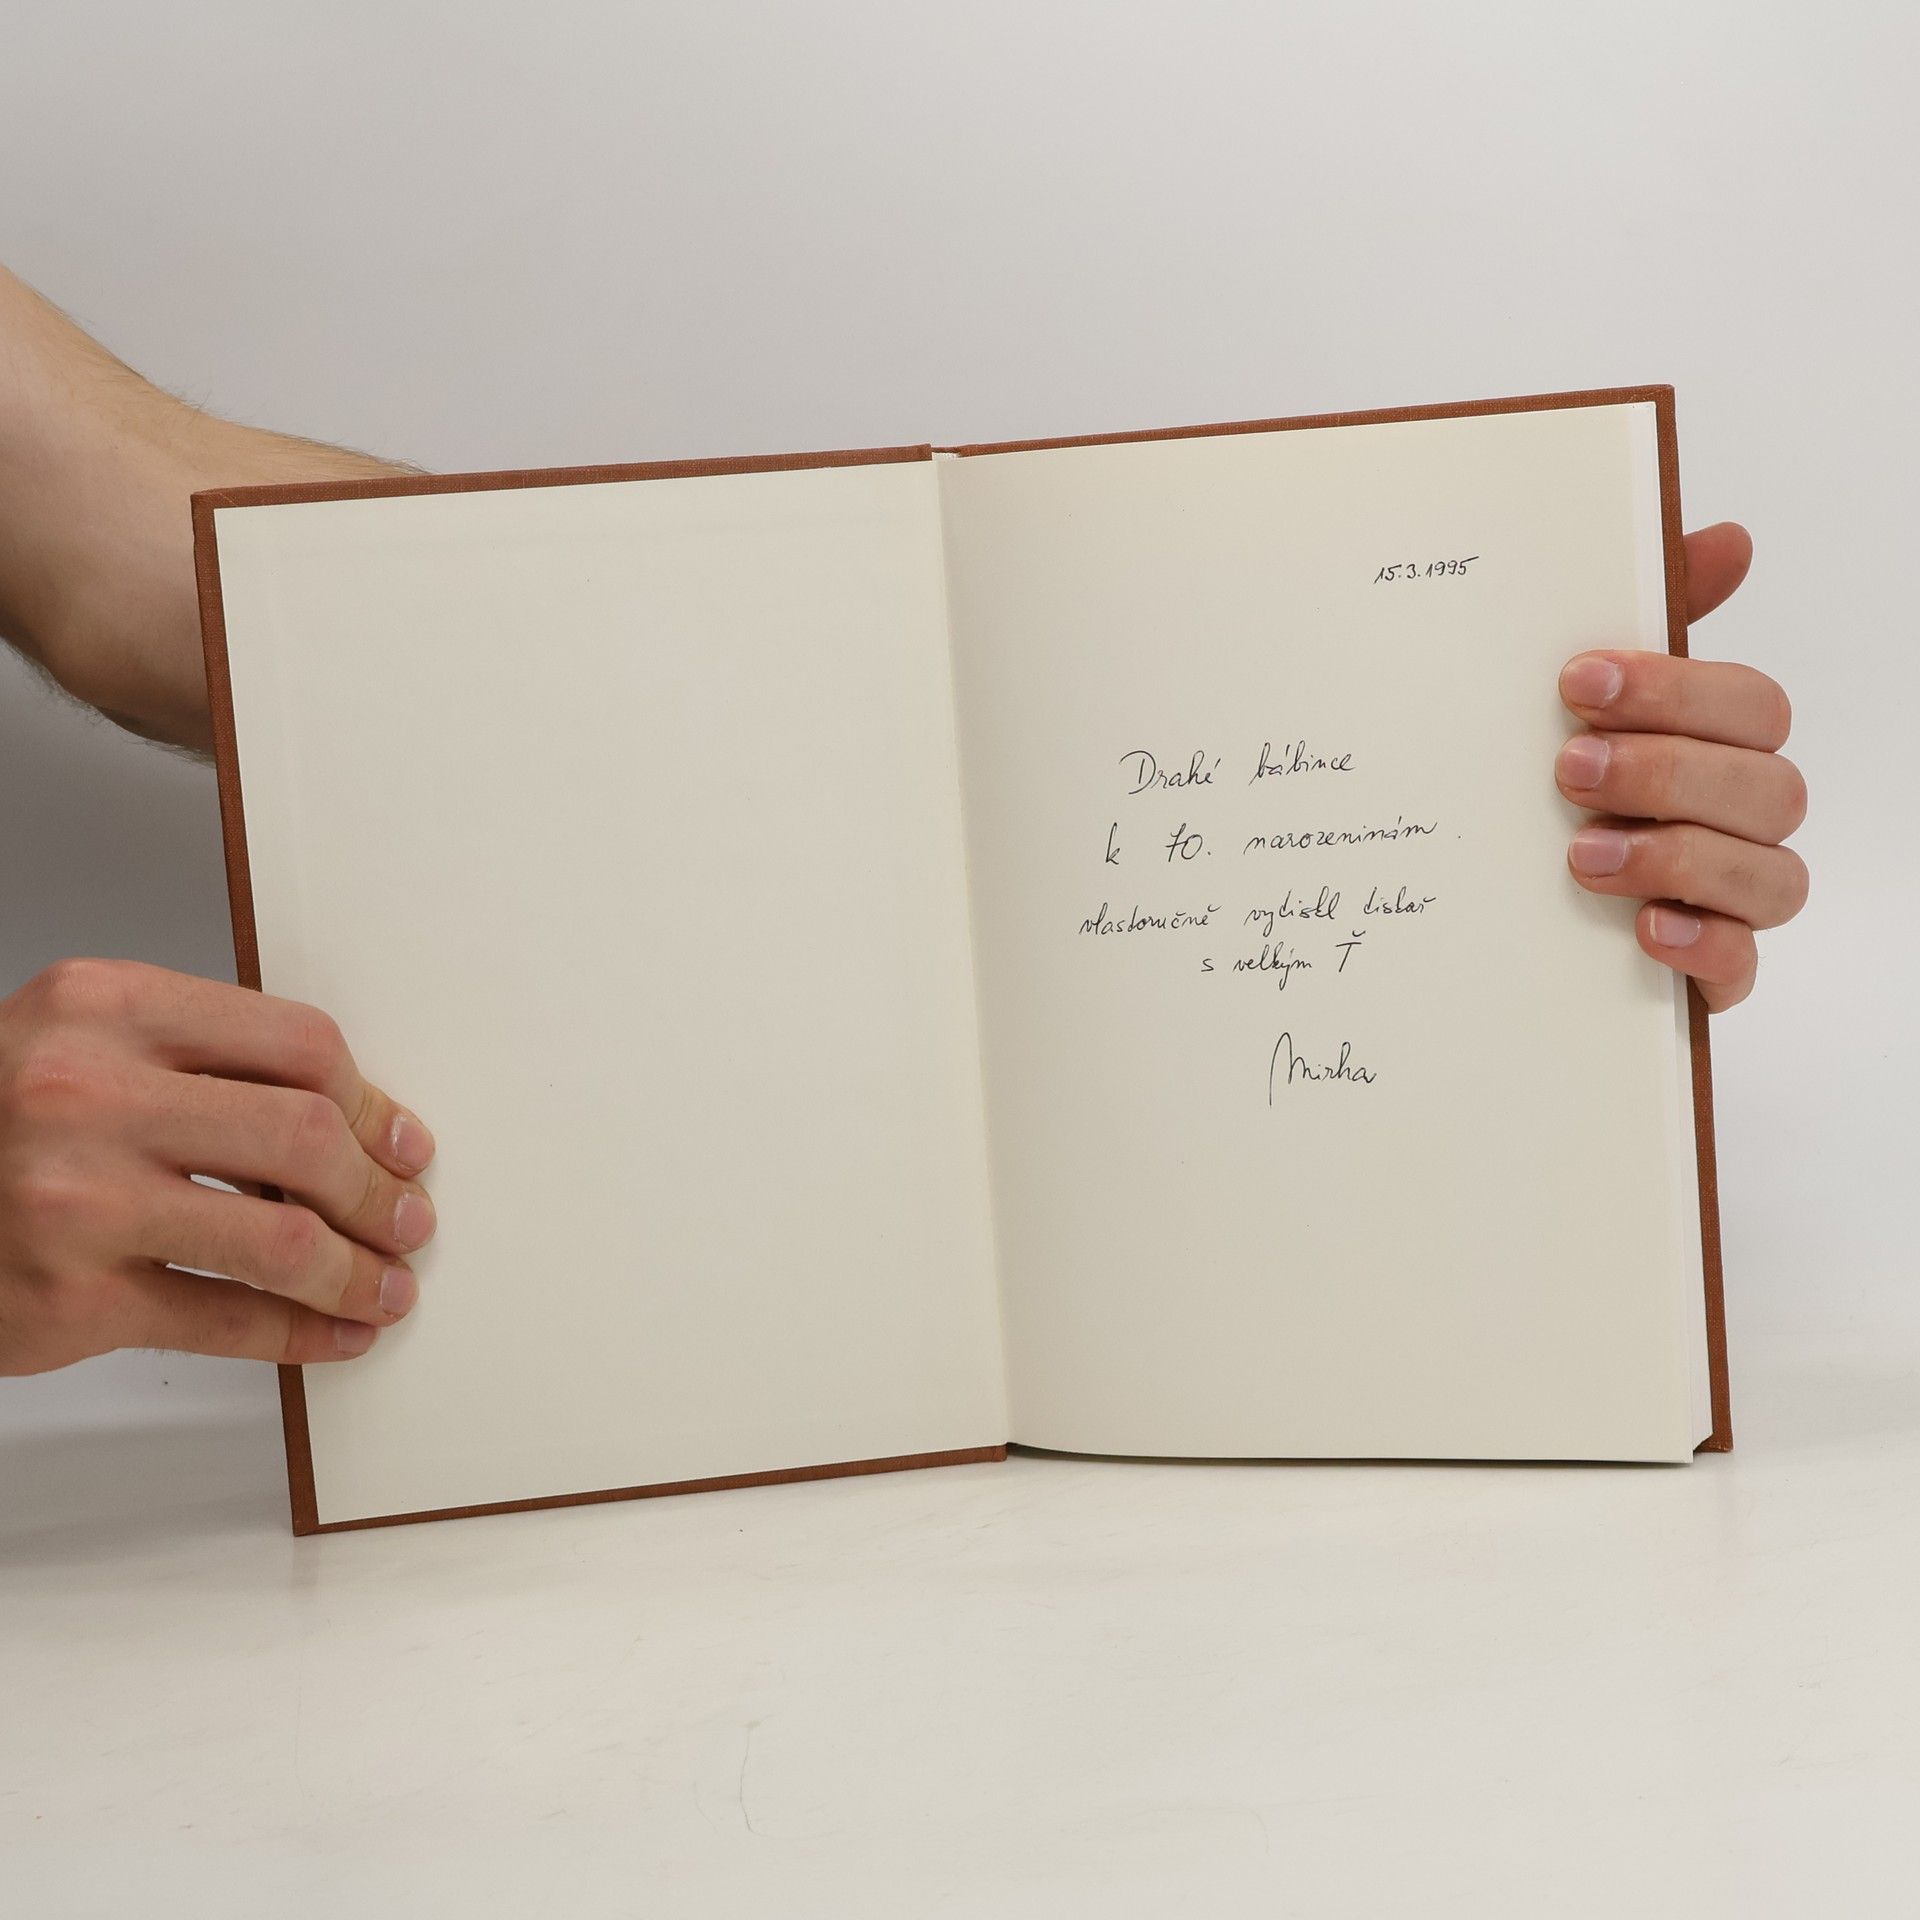 15.3.1995
Drahé bábince
k 70. narozeninám.
vlastoručně vytiskl tiskař
s velkým Ť
Mirka